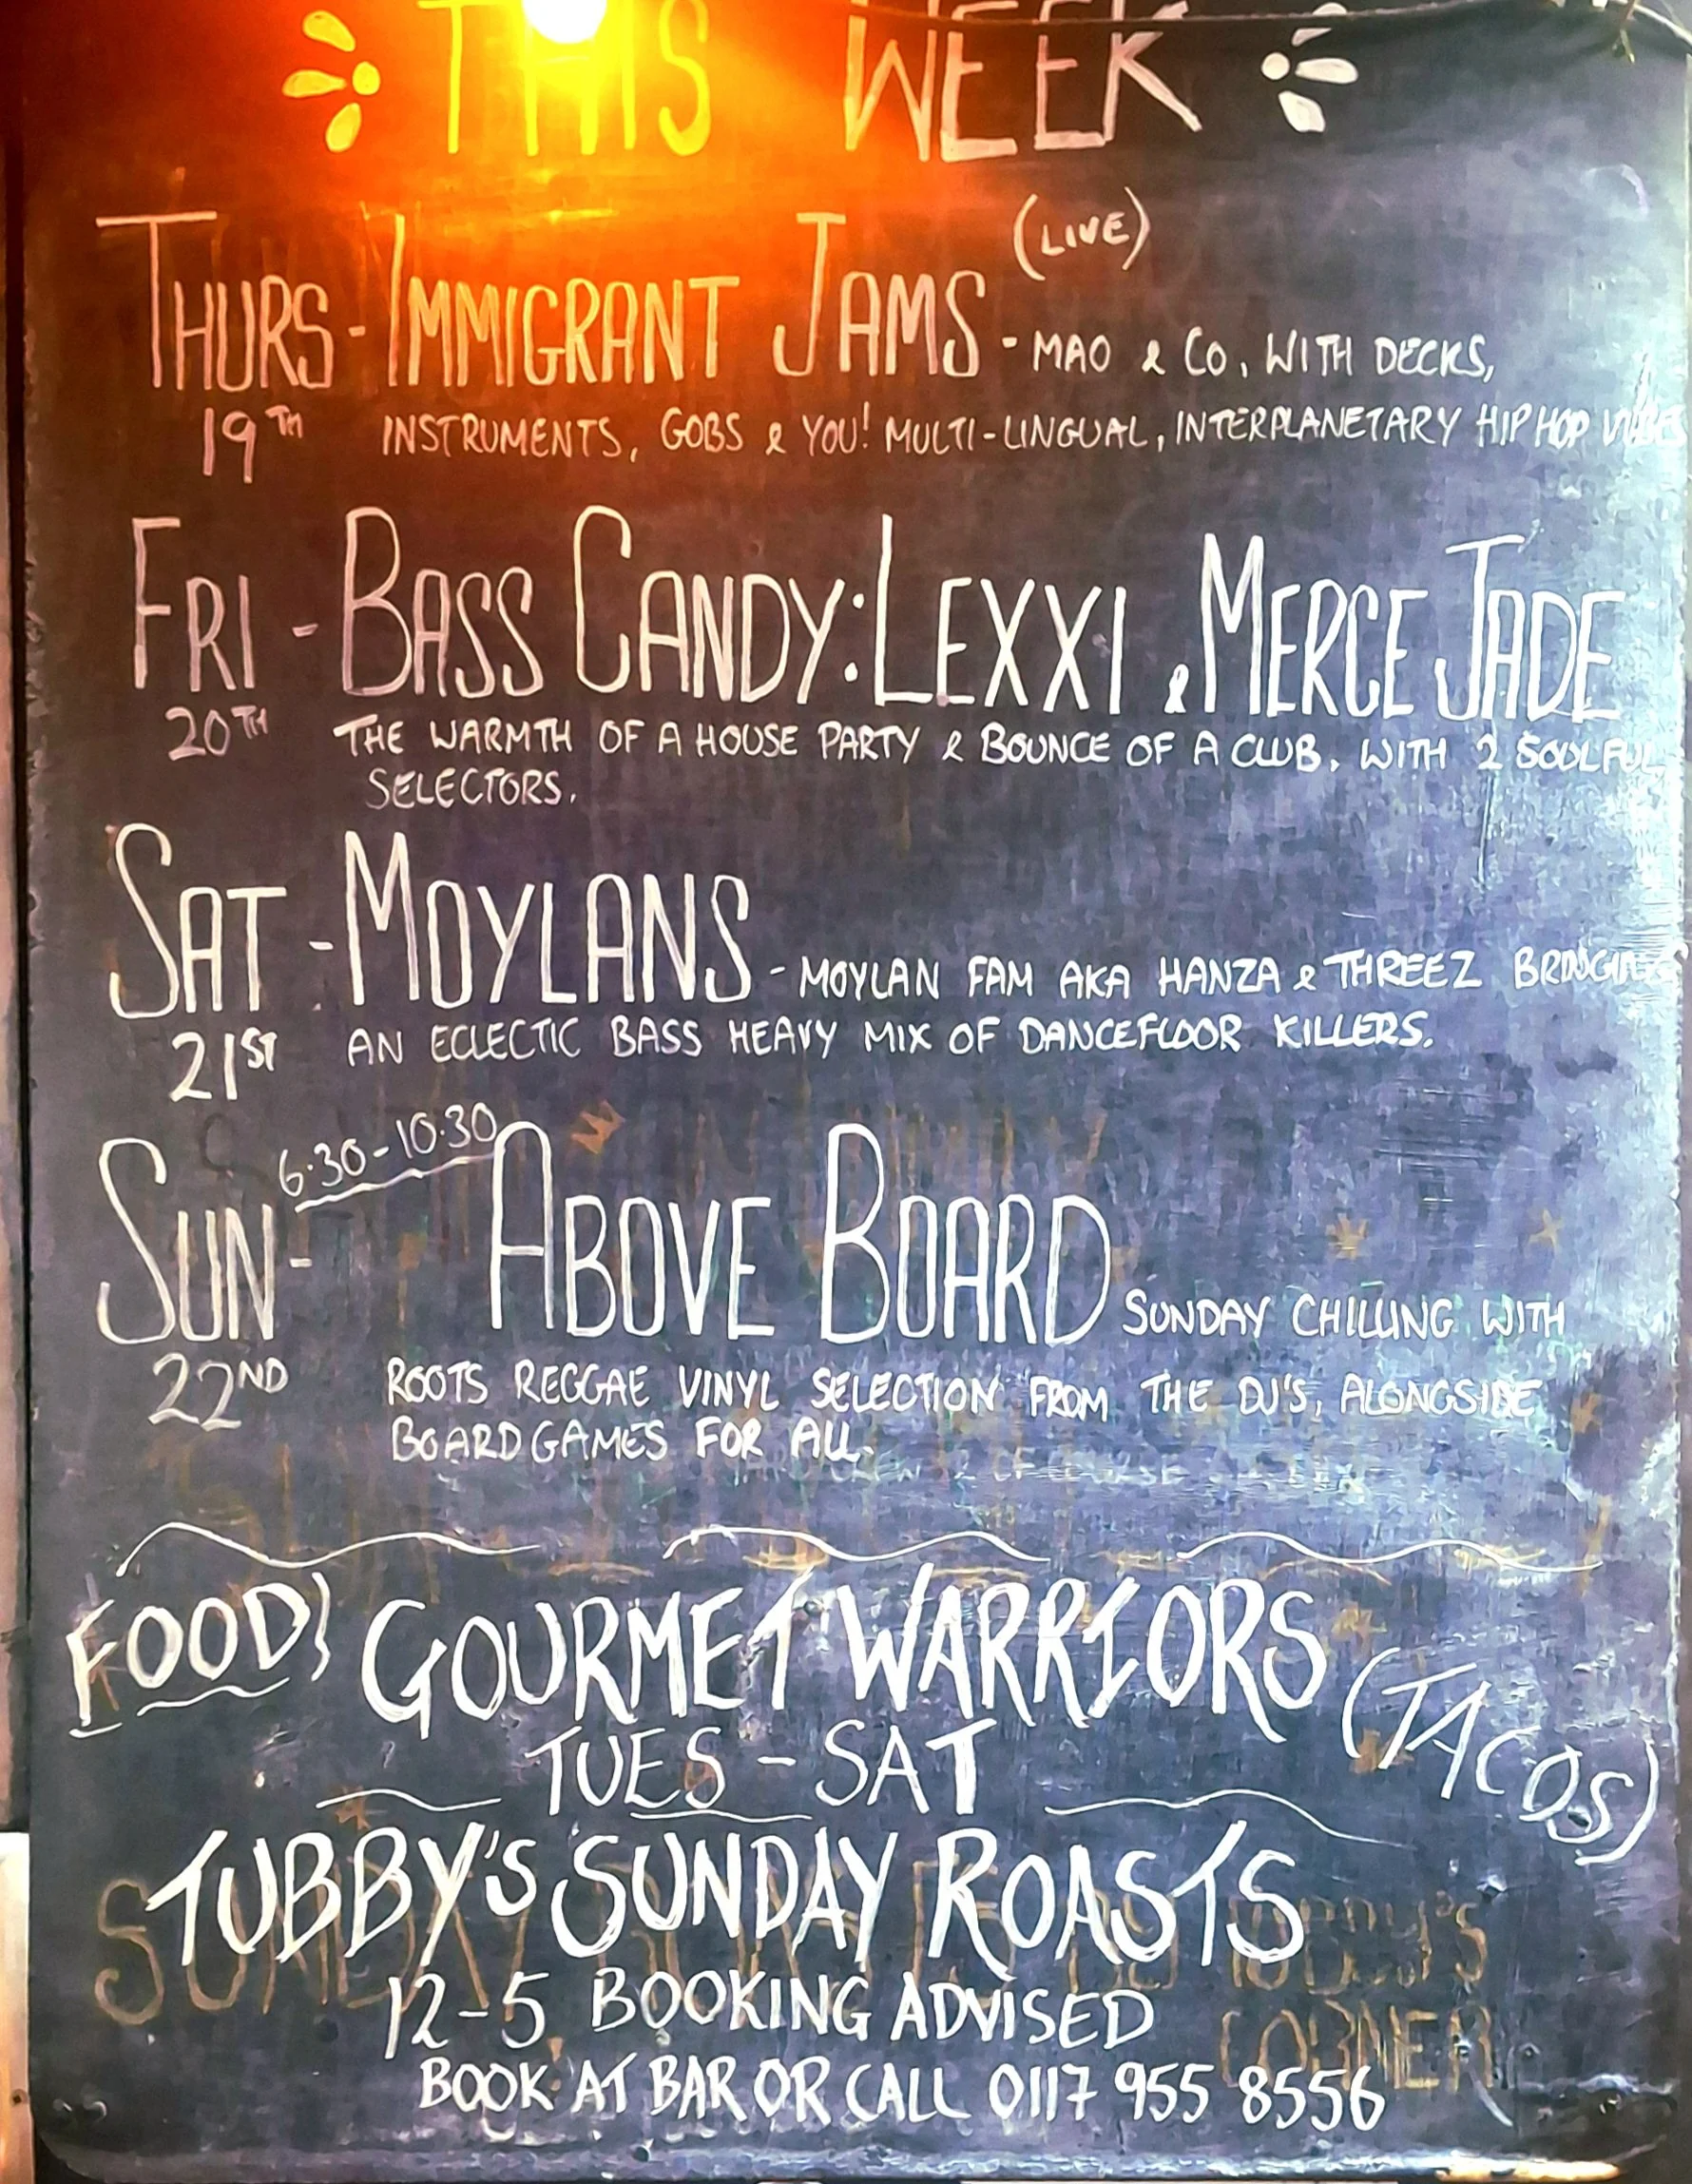 THIS WEEK
THURS - IMMIGRANT JAMS (LIVE) - MAO & CO, WITH DECKS,
19TH INSTRUMENTS, GOBS & YOU! MULTI-LINGUAL, INTERPLANETARY HIP HOP VIBES
FRI - BASS CANDY: LEXXI & MERCE JADE
20TH THE WARMTH OF A HOUSE PARTY & BOUNCE OF A CLUB, WITH 2 SOULFUL
SELECTORS.
SAT - MOYLANS - MOYLAN FAM AKA HANZA & THREEZ BRINGING
21ST AN ECLECTIC BASS HEAVY MIX OF DANCEFLOOR KILLERS.
SUN - 6.30-10.30 ABOVE BOARD SUNDAY CHILLING WITH
22ND ROOTS REGGAE VINYL SELECTION FROM THE DJ'S, ALONGSIDE
BOARDGAMES FOR ALL.
FOOD} GOURMET WARRIORS (TACOS)
TUES - SAT
TUBBY'S SUNDAY ROASTS
12-5 BOOKING ADVISED
BOOK AT BAR OR CALL 0117 955 8556